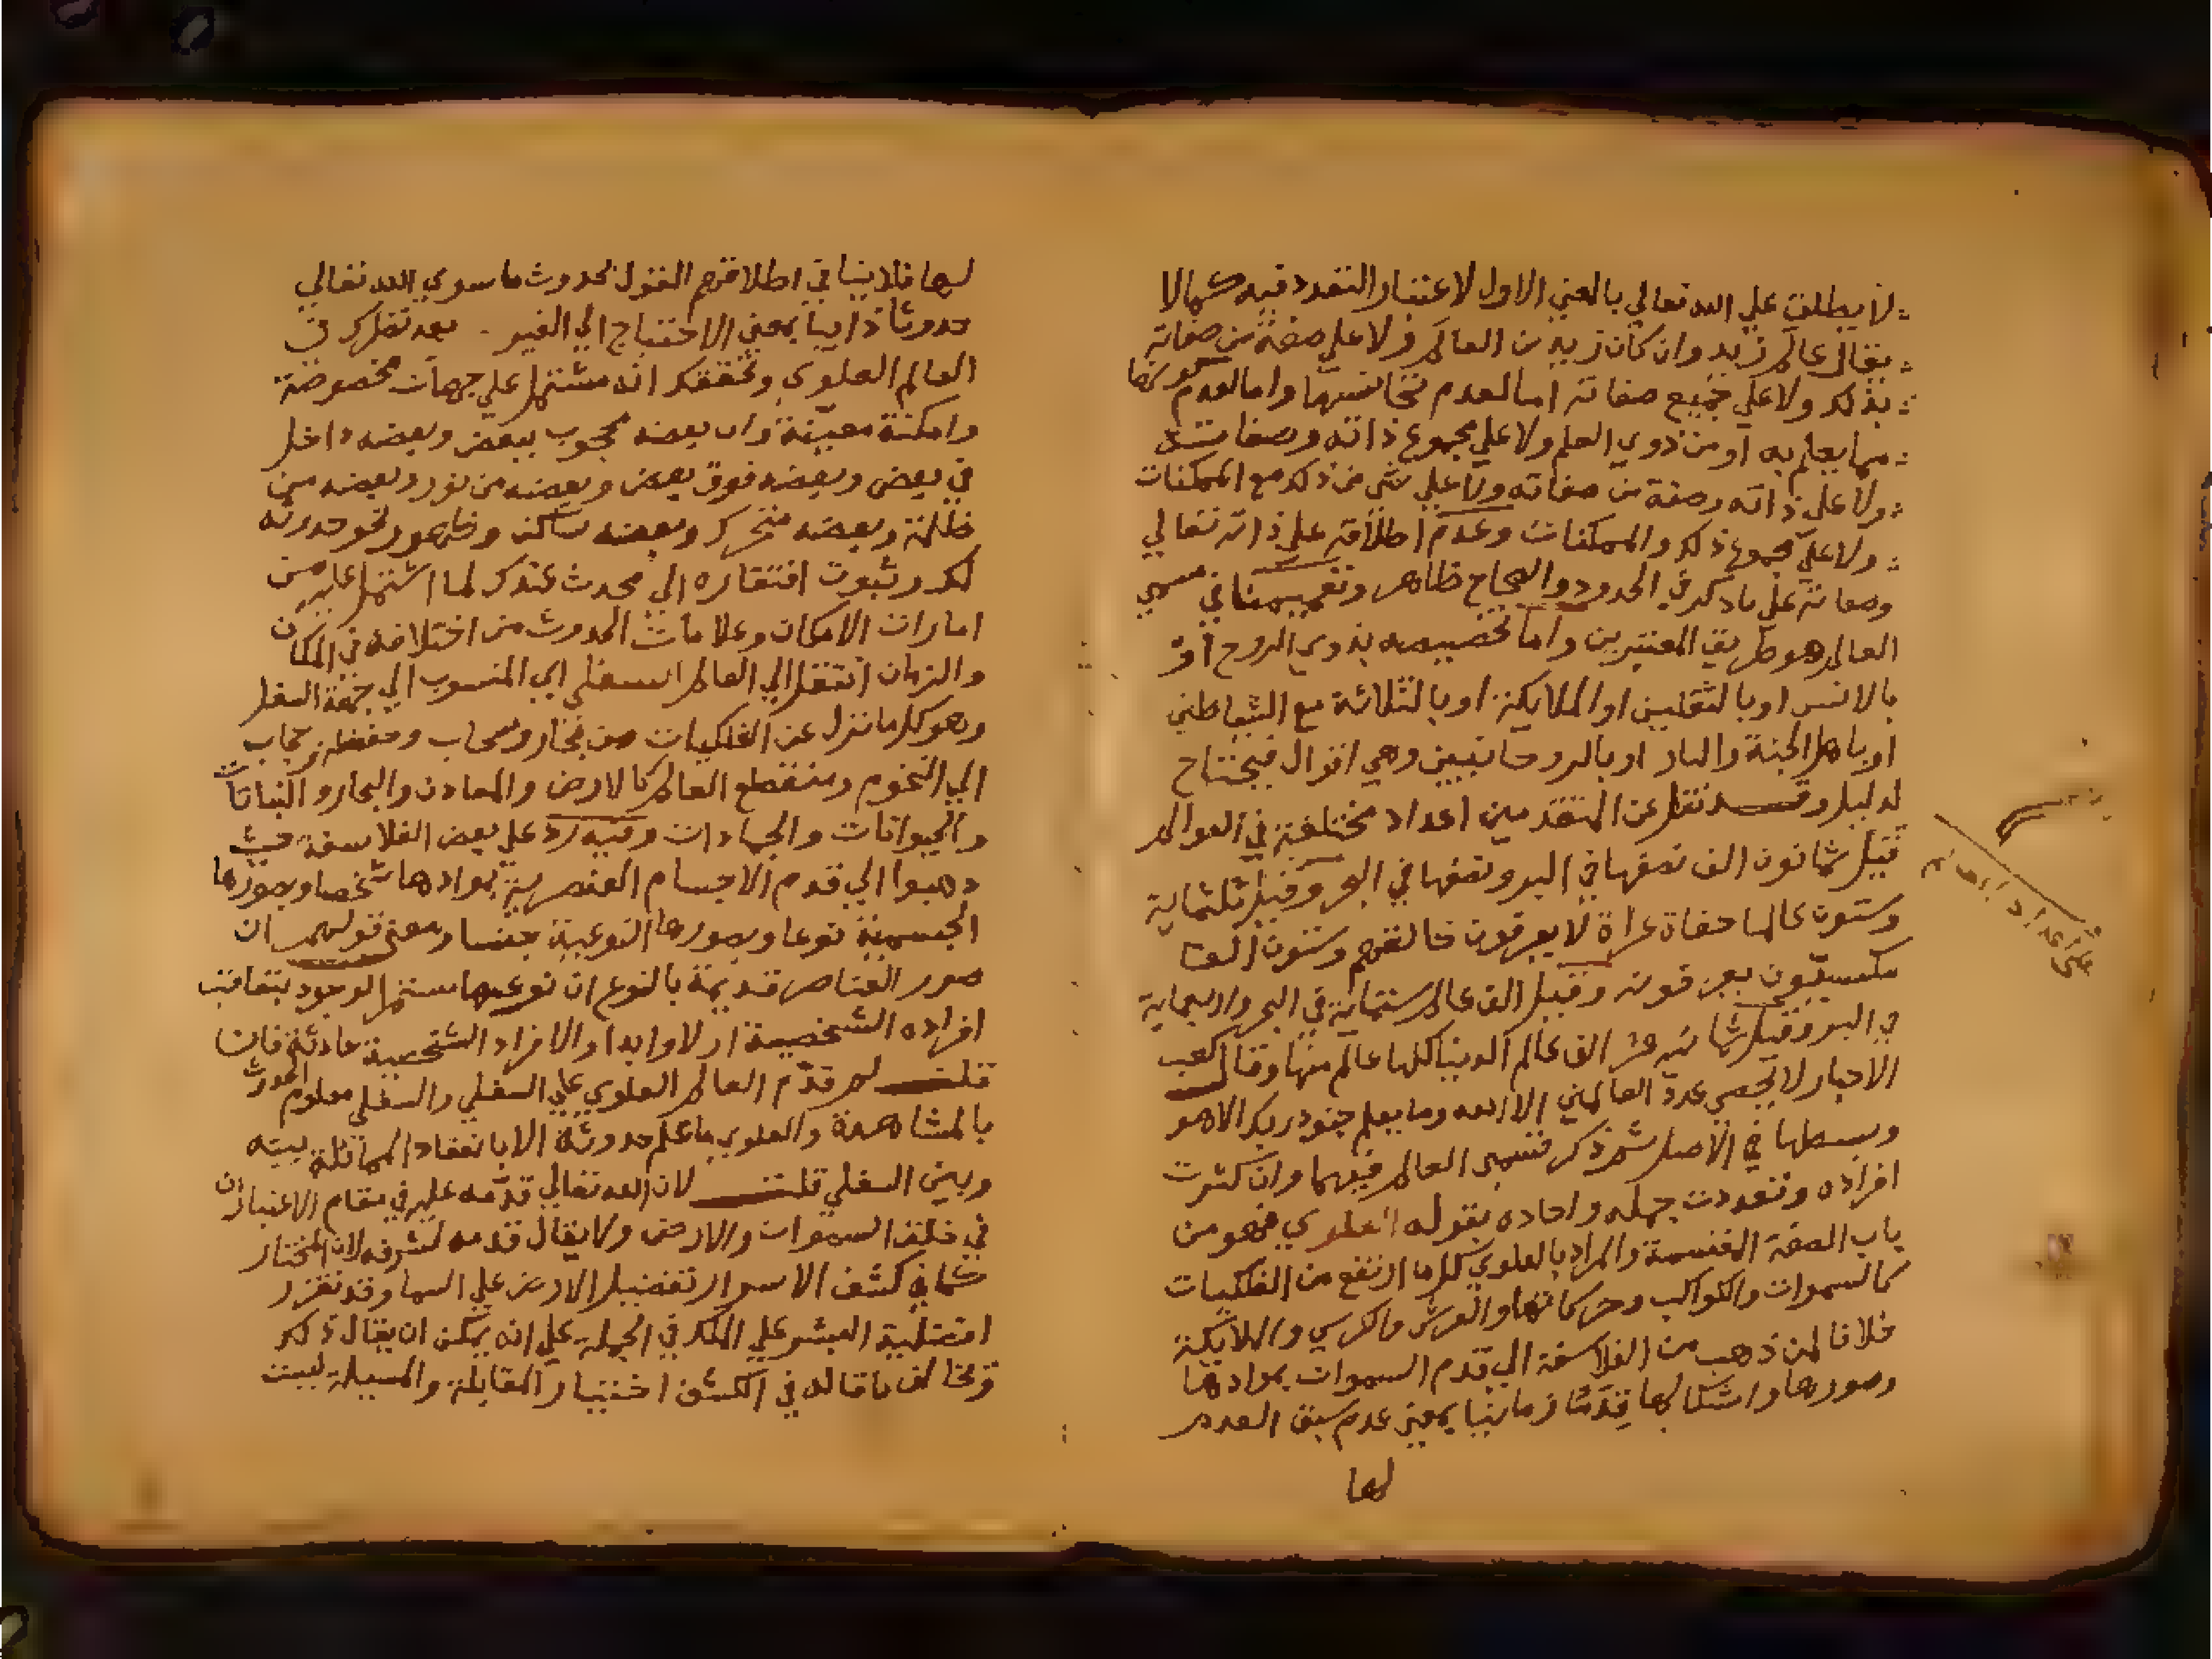 لا يطلق علي الله تعالي بالمعني الاول لاعتبار التعدد فيه كما لا
يقال عالم زيد وان كان زيد من العالم ولا علي صفة من صفاته
بذلك ولا علي جميع صفاته اما لعدم تجانسها واما لعدم كونها
مما يعلم به او من ذوي العلم ولا علي مجموع ذاته وصفاته
ولا علي ذاته وصفة من صفاته ولا علي شي من ذلك مع الممكنات
ولا علي مجموع ذلك والممكنات وعدم اطلاقه علي ذاته تعالي
وصفاته علي ما ذكر في الحدود والصحاح ظاهر وتعميمنا في مسمي
العالم هو طريق المعتبرين واما تخصيصه بذوي الروح او
بالانس او بالثقلين او الملايكة او بالثلاثة مع الشياطين
او باهل الجنة والنار او بالروحانيين وهي اقوال فيحتاج
لدليل وقد نقل عن المتقدمين اعداد مختلفة في العوالم
قيل ثمانون الف نصفها في البر ونصفها في البحر وقيل ثلثماية
وستون عالما حفاة عراة لا يعرفون خالقهم وستون الفا
مكسيون يعرفونه وقيل الف عالم ستماية في البحر واربعماية
في البر وقيل ثمانية عشر الف عالم الدنيا كلها عالم منها وقال كعب
الاحبار لا يحصي عدد العالمين الا الله وما يعلم جنود ربك الا هو
وبسطها في الاصل ثم ذكر قسمي العالم فيهما وان كثرت
افراده وتعددت جمله واحاده بقوله العلوي فهو من
باب الصفة المقسمة والمراد بالعلوي كل ما ارتفع من الفلكيات
كالسموات والكواكب وحركاتها والعرش والكرسي والملايكة
خلافا لمن ذهب من الفلاسفة الي قدم السموات بموادها
وصورها واشكالها قدما زمانيا بمعني عدم سبق العدم
لها
علي اعداد العالم
لها فلا ينافي اطلاقهم القول بحدوث ما سوي الله تعالي
حدوثا ذاتيا بمعني الاحتياج الي الغير . بعد نظرك في
العالم العلوي وتحققك انه مشتمل علي جهات مخصوصة
وامكنة معينة وان بعضه محجوب ببعض وبعضه داخل
في بعض وبعضه فوق بعض وبعضه من نور وبعضه من
ظلمة وبعضه متحرك وبعضه ساكن وظهور نحو حدوثه
لك وثبوت افتقاره الي محدث عندك لما اشتمل عليه من
امارات الامكان وعلامات الحدوث من اختلافه في المكان
والزمان انتقل الي العالم السفلي اي المنسوب الي جهة السفل
وهو كل ما نزل عن الفلكيات من بخار وسحاب
الي التخوم ومنقطع العالم كالارض والمعادن والبحار والنباتات
والحيوانات والجمادات وفيه رد علي بعض الفلاسفة حيث
ذهبوا الي قدم الاجسام العنصرية بموادها شخصا وبصورها
الجسمية نوعا وبصورها النوعية جنسا ومعني قولهم ان
صور العناصر قديمة بالنوع ان نوعها مستمر الوجود بتعاقب
افراده الشخصية ازلا وابدا والافراد الشخصية حادثة فان
قلت لم قدم العالم العلوي علي السفلي والسفلي معلوم الحدوث
بالمشاهدة والعلوي ما علم حدوثه الا بانعقاد المماثلة بينه
وبين السفلي قلت لان الله تعالي قدمه عليه في مقام الاعتبار ان
في خلق السموات والارض ولا يقال قدمه لشرفه لان المختار
كما في كشف الاسرار تفضيل الارض علي السما وقد تقرر
افضلية البشر علي الملك في الجملة علي انه يمكن ان يقال ذلك
وتخالف ما قاله في الكشف اختيار المقابلة والمسيلة ليست